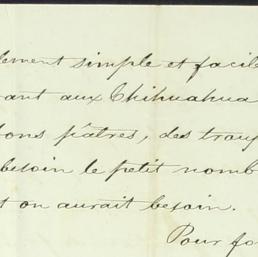 lement simple et facile
rant aux Chihuahua
bons pâtres, des troup
besoin le petit nomb
t on aurait besoin.
Pour fo